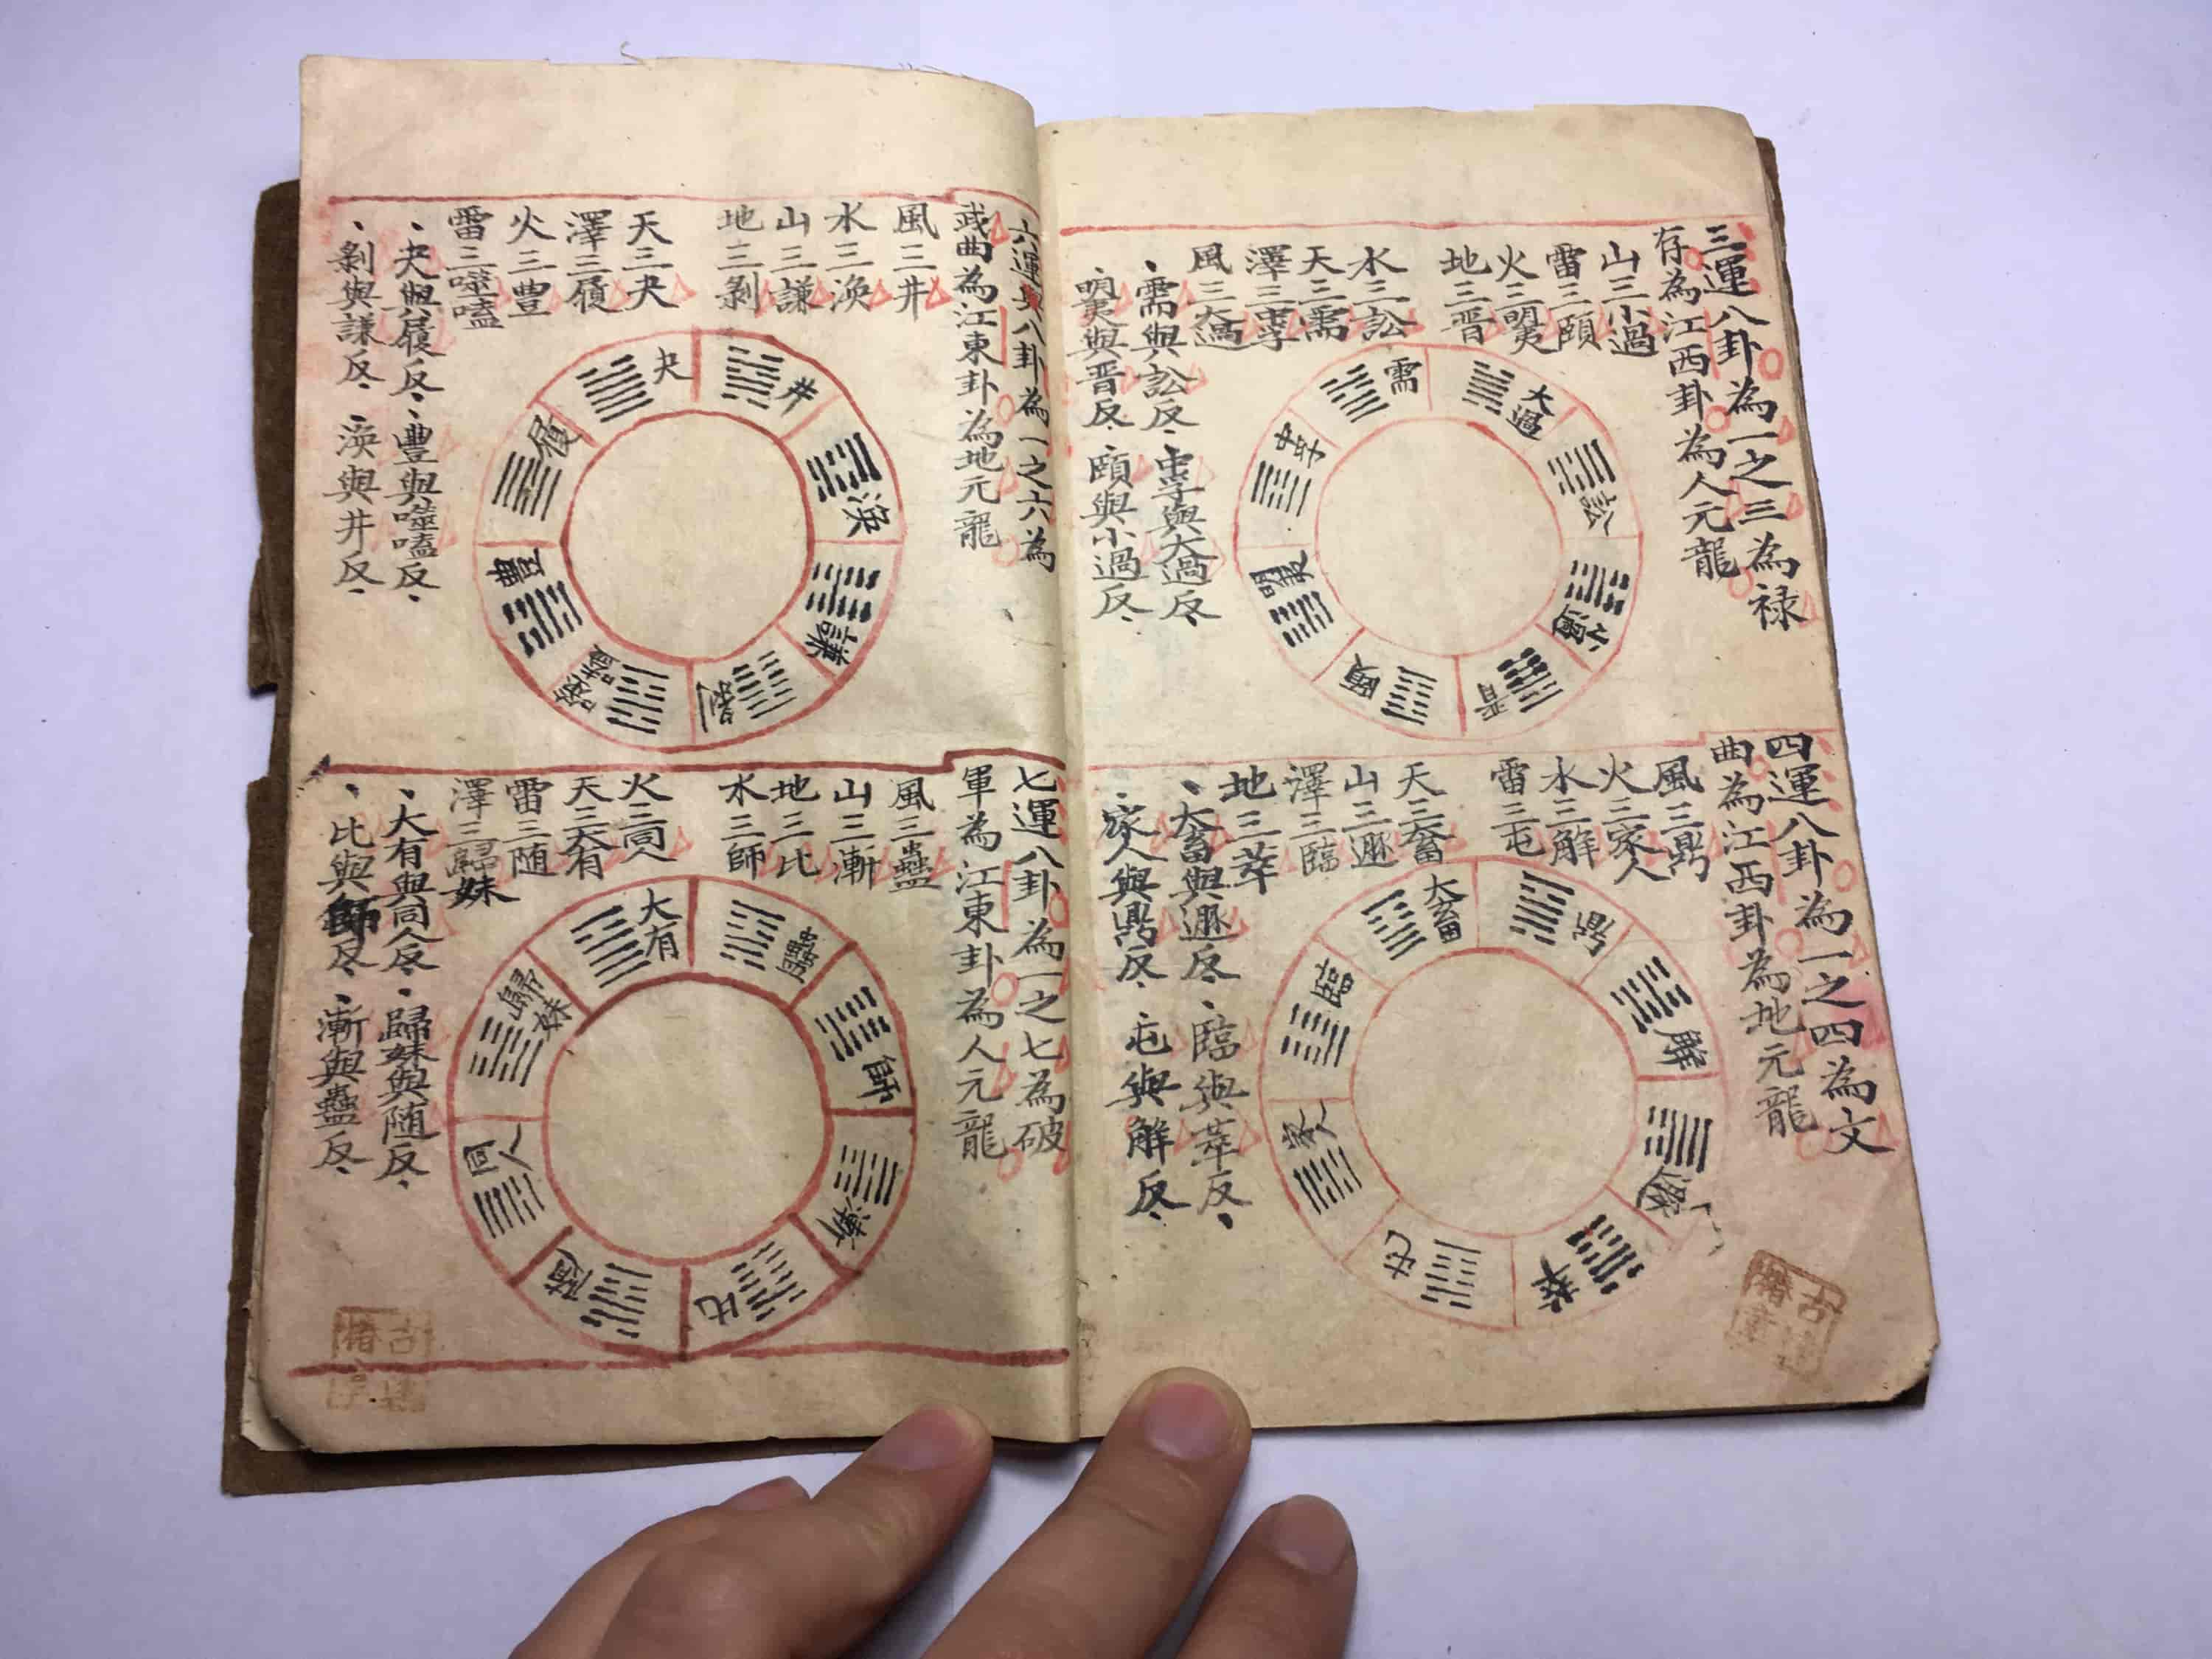 三運八卦為一之三為禄
存為江西卦為人元龍
山三小過
雷三頤
火三明夷
地三晋
水三訟
天三需
澤三中孚
風三大過
、需與訟反、中孚與大過反、
明夷與晋反、頤與小過反、
大過
訟
小過
晋
頤
明夷
中孚
需
四運八卦為一之四為文
曲為江西卦為地元龍
風三鼎
火三家人
水三解
雷三屯
天三大畜
山三遯
澤三臨
地三萃
、大畜與遯反、臨與萃反、
、家人與鼎反、屯與解反、
鼎
解
遯
萃
屯
家人
臨
大畜
六運八卦為一之六為
武曲為江東卦為地元龍
風三井
水三渙
山三謙
地三剝
天三夬
澤三履
火三豊
雷三噬嗑
、夬與履反、豊與噬嗑反、
、剝與謙反、渙與井反、
井
渙
謙
剝
噬嗑
豊
履
夬
七運八卦為一之七為破
軍為江東卦為人元龍
風三蠱
山三漸
地三比
水三師
火三同人
天三大有
雷三随
澤三歸妹
、大有與同人反、歸妹與随反、
、比與師反、漸與蠱反、
蠱
師
漸
比
随
同人
歸妹
大有